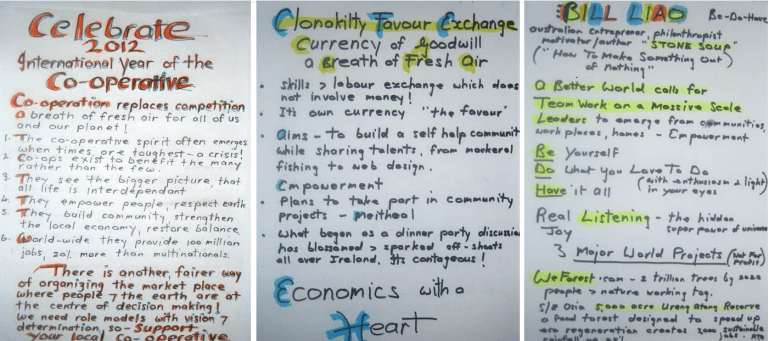 Celebrate
2012
International year of the
Co-operative
Co-operation replaces competition
a breath of fresh air for all of us
and our planet!
1. The co-operative spirit often emerges
when times are toughest - a crisis!
2. Co-ops exist to benefit the many
rather than the few.
3. They see the bigger picture, that
all life is interdependant
4. They empower people, respect earth
5. They build community, strengthen
the local economy, restore balance.
6. World-wide they provide 100 million
jobs, 20% more than multinationals.
There is another, fairer way
of organizing the market place
where people 7 the earth are at
the centre of decision making!
we need role models with vision 7
determination, so - Support
your local Co-operative
Clonakilty Favour Exchange
Currency of Goodwill
a Breath of Fresh Air
• Skills > labour exchange which does
not involve money!
• It's own currency "the favour"
• Aims - to build a self help communit
while sharing talents, from mackerel
fishing to web design.
Empowerment
• Plans to take part in community
projects - meitheal
• What began as a dinner party discussion
has blossomed > sparked off-shoots
all over Ireland. Its contageous!
Economics with a
Heart
BILL LIAO Be-Do-Have
australian Entrepreneur, philanthropist
motivator/author "STONE SOUP"
("How To Make Something out)
of nothing"
a Better World calls for
Team Work on a Massive Scale
Leaders to emerge from communities,
work places, homes - Empowerment
Be Yourself
Do What you Love To Do
(with enthusiasm & light)
Have it all in your eyes
Real Listening - the hidden
super power of universe
Joy
3 Major World Projects (Not For)
Profit
WeForest.com - 2 trillion trees by 2020
people > nature working tog.
S/E Asia 5,000 acre Reserve
a Food forest designed to speed up
regeneration creates 2000 sustainable
jobs.